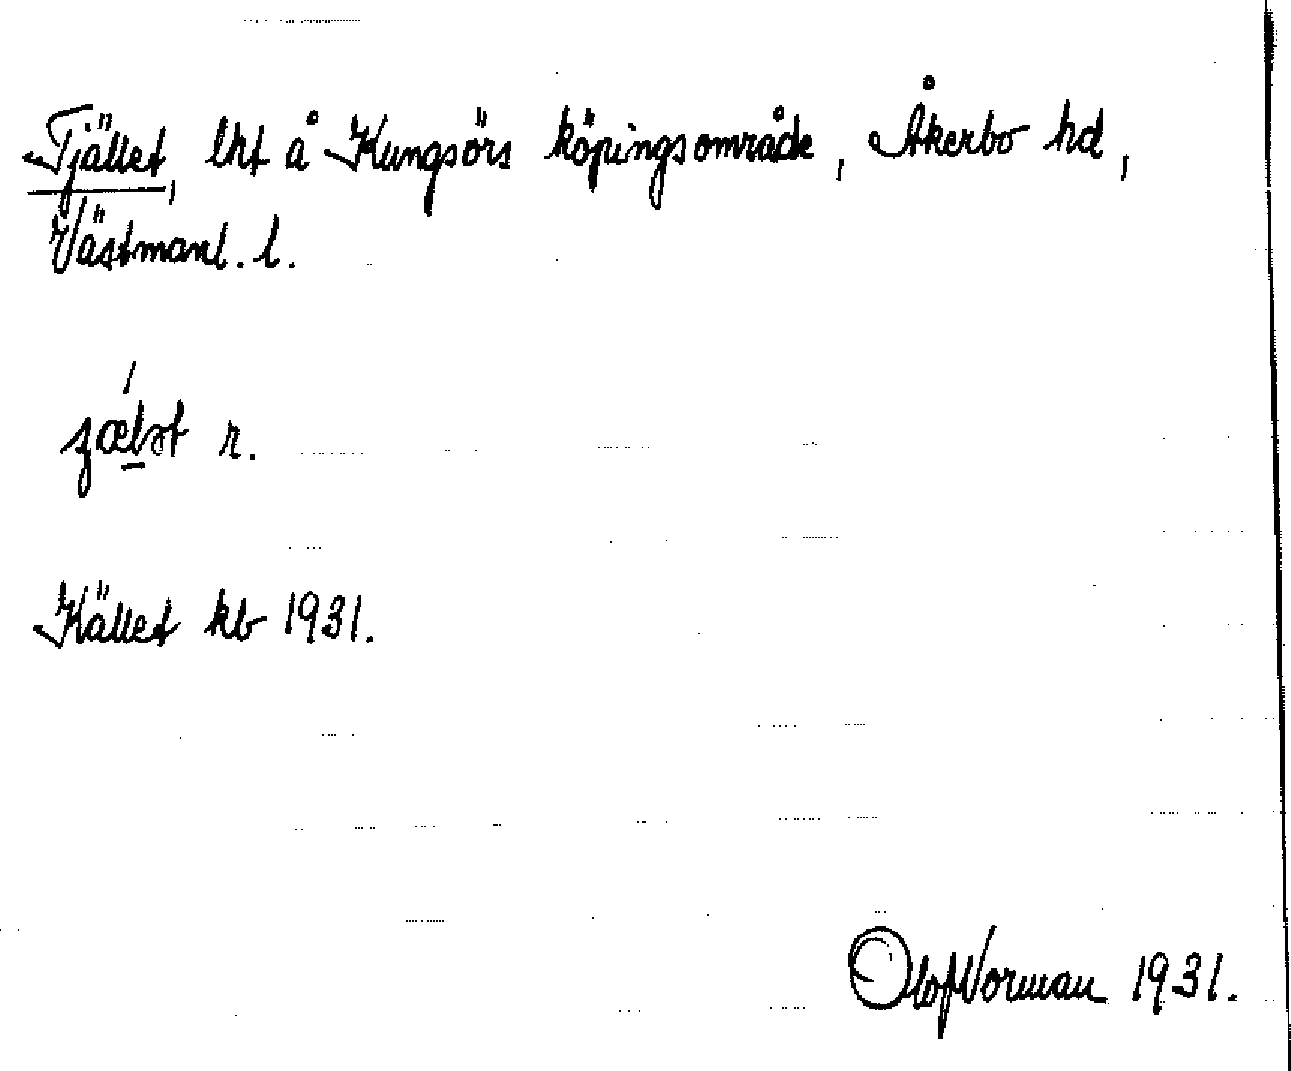 Tjället, lht å Kungsörs köpingsområde, Åkerbo hd,
Västmanl. l.
r.
Kället kb 1931.
Olof Norman 1931.